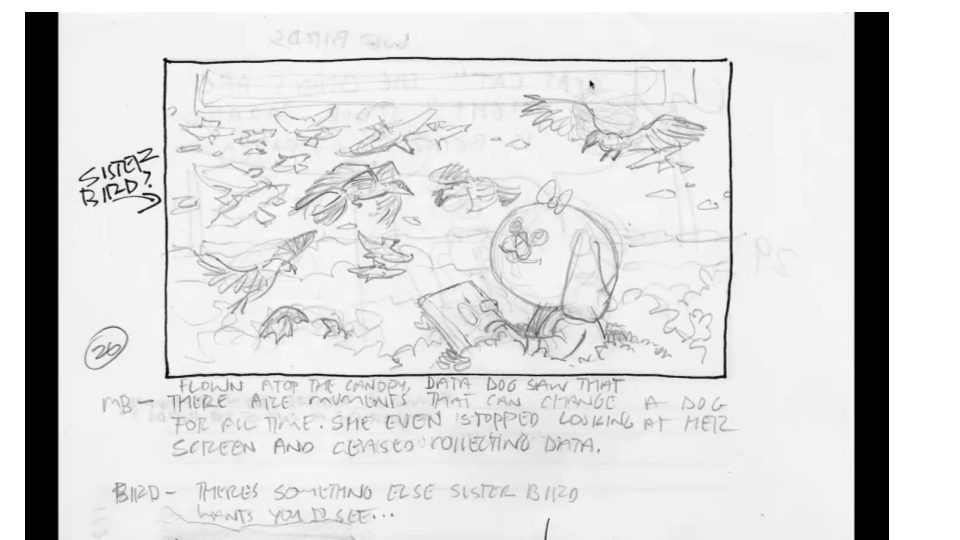 SISTER
BIRD?
26
FLOWN ATOP THE CANOPY, DATA DOG SAW THAT
MB - THERE ARE MOMENTS THAT CAN CHANGE A DOG
FOR ALL TIME. SHE EVEN STOPPED LOOKING AT HER
SCREEN AND CEASED COLLECTING DATA.
BIRD - THERES SOMETHING ELSE SISTER BIRD
WANTS YOU TO SEE...